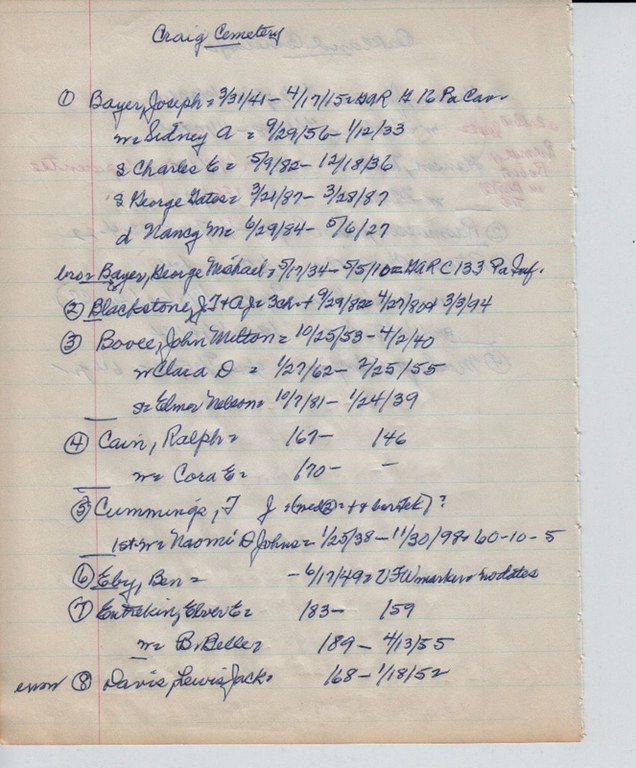 Craig Cemetery
① Bayer, Joseph = 3/31/41 - 4/17/15 = GAR H 16 Pa Cav
w = Sidney A = 9/29/56 - 1/12/33
s Charles E = 5/9/82 - 12/18/36
s George Oates = 3/21/87 - 3/28/87
d Nancy M = 6/29/84 - 5/6/27
bro = Bayer, George Michael = 5/17/34 - 5/5/10 = GAR C 133 Pa Inf.
② Blackstone, J T + A J = 3 ch = + 9/29/82 = 4/27/80 + 3/3/94
③ Bovee, John Milton = 10/25/53 - 4/2/40
w Clara D = 1/27/62 - 2/25/55
s = Elmer Nelson = 10/7/81 - 1/24/39
④ Cain, Ralph = 167 - 146
w = Cora E = 170 - -
⑤ Cummings, T J = ?
1st w = Naomi D Johns = 1/25/38 - 11/30/98 = 60-10-5
⑥ Eby, Ben = - 6/17/49 = VFW marker = no dates
⑦ Entrekin, Elver E = 183 - 159
w = B. Belle = 189 - 4/13/55
⑧ Davis, Lewis Jack = 168 - 1/18/52